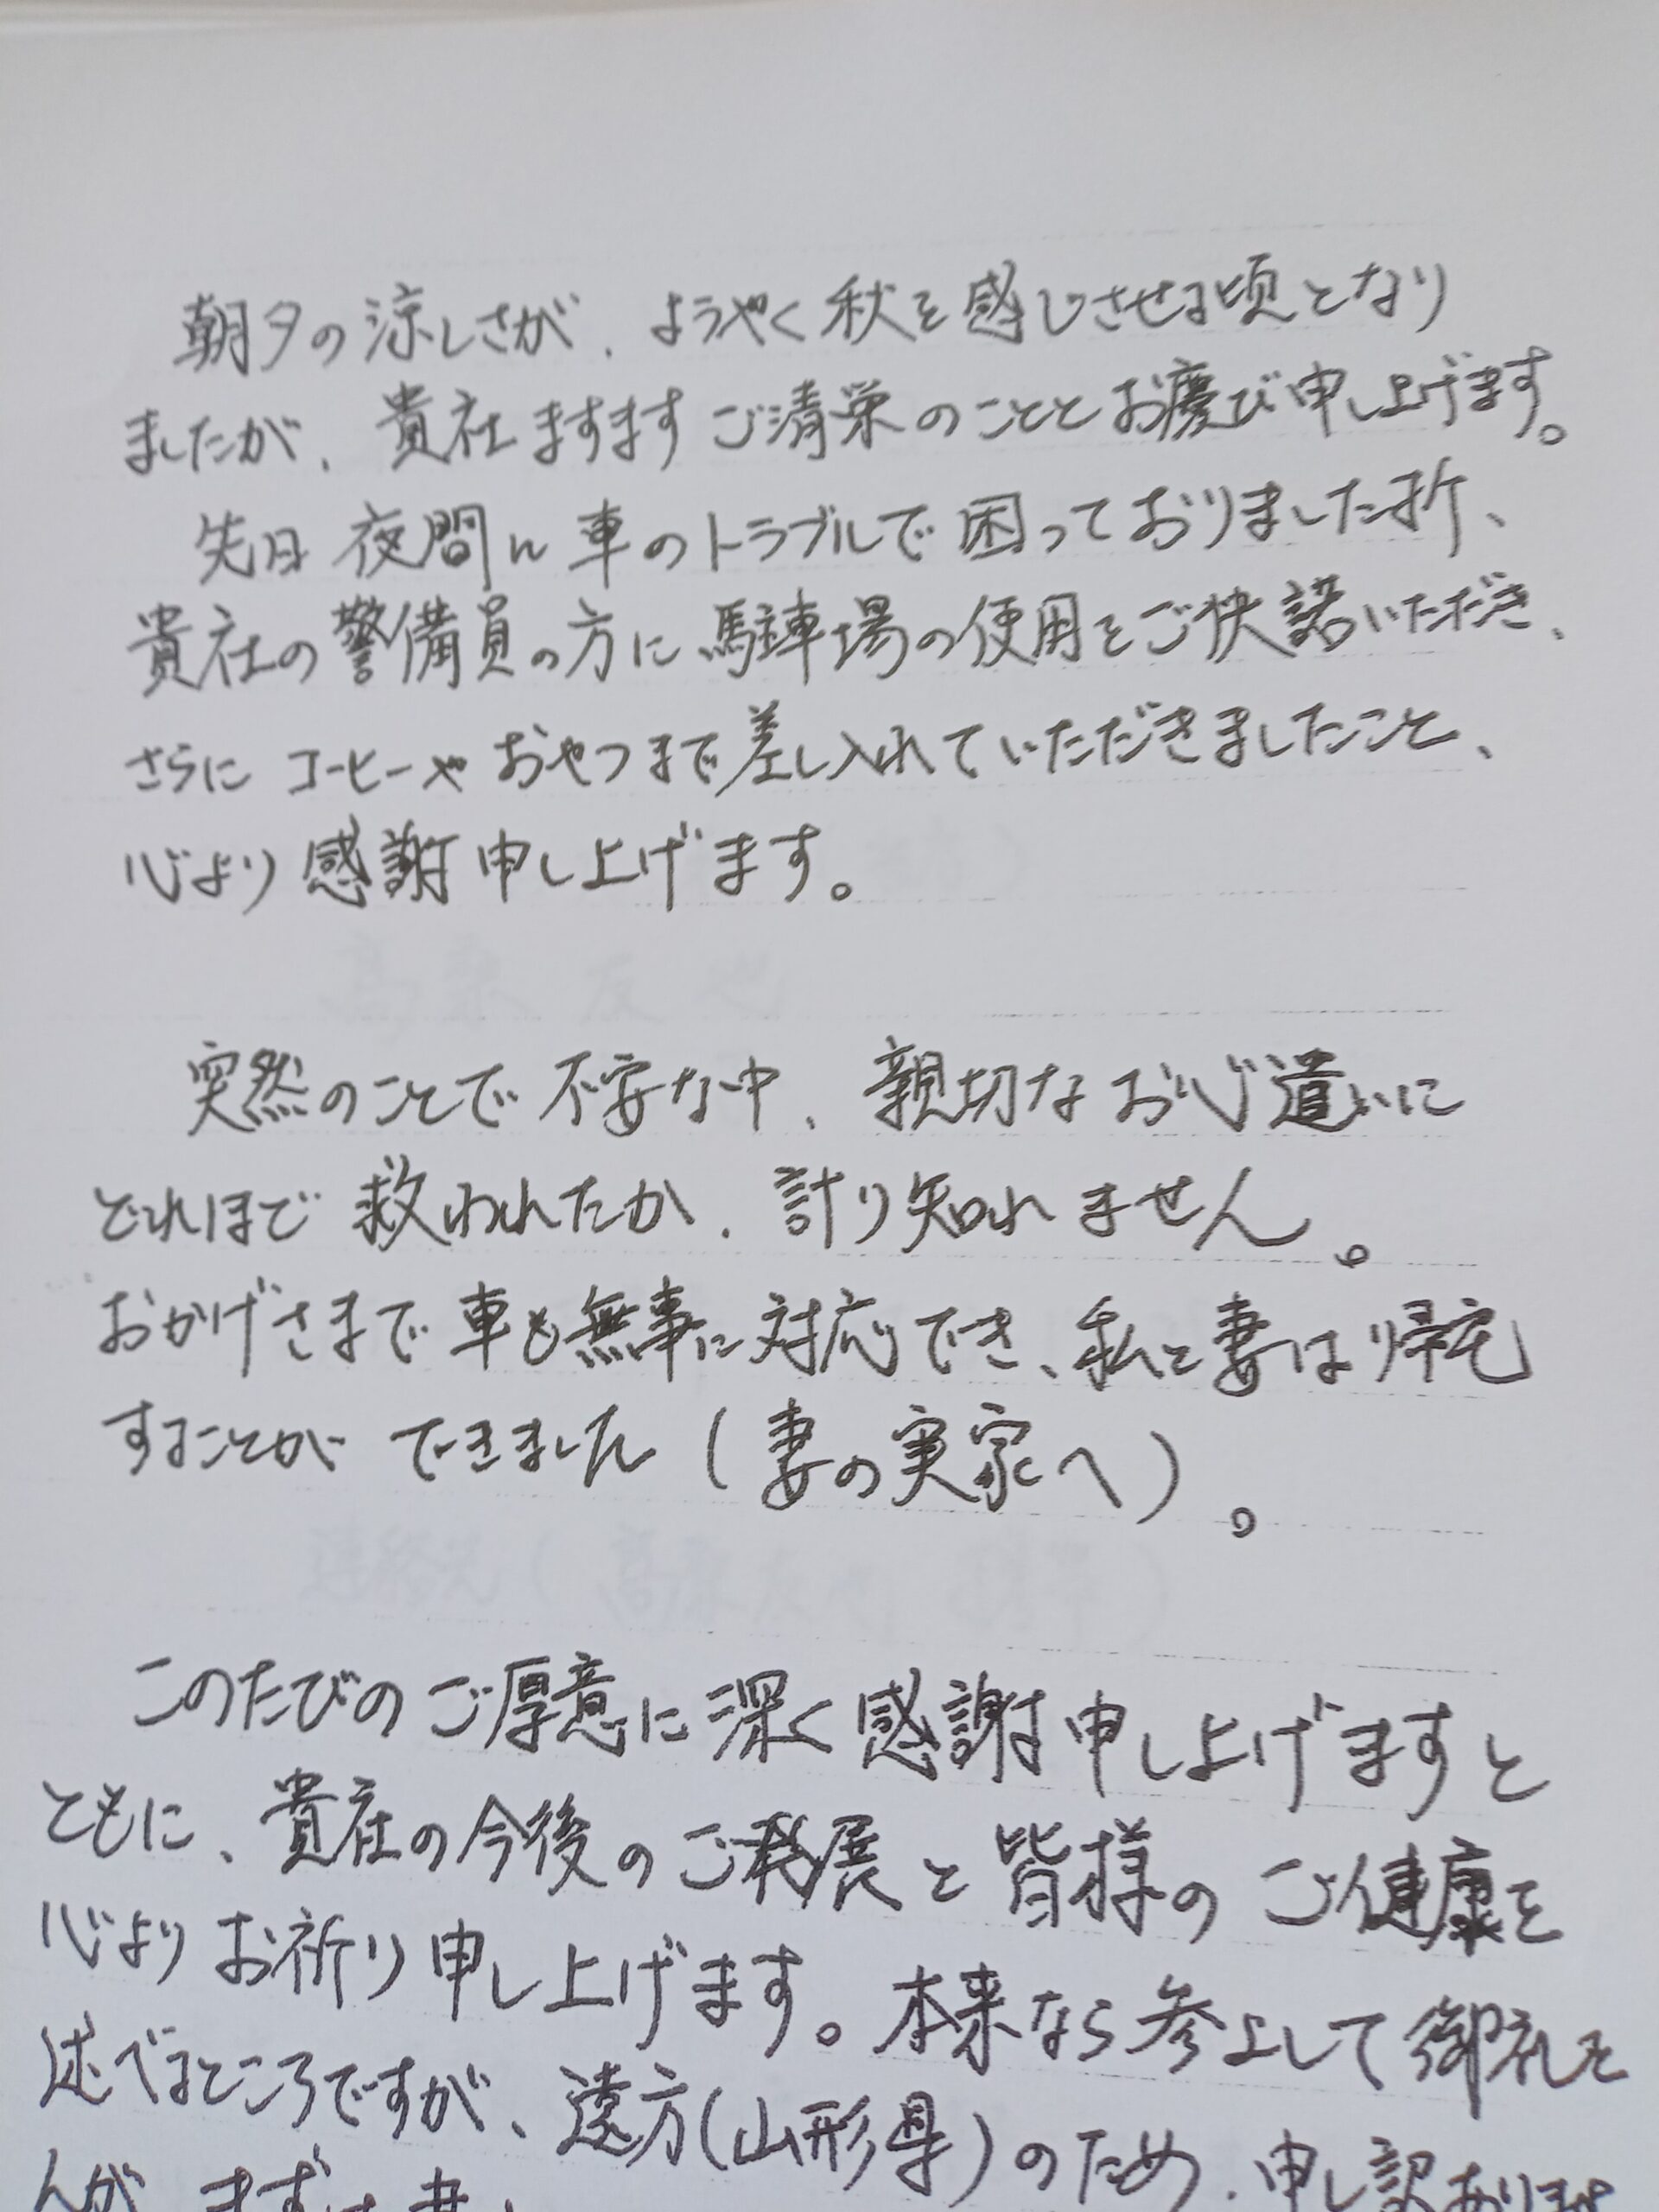 朝夕の涼しさが、ようやく秋を感じさせる頃となり
ましたが、貴社ますますご清栄のこととお慶び申し上げます。
先日夜間に車のトラブルで困っておりました折、
貴社の警備員の方に駐車場の使用をご快諾いただき、
さらにコーヒーやおやつまで差し入れていただきましたこと、
心より感謝申し上げます。
突然のことで不安な中、親切なお心遣いに
どれほど救われたか、計り知れません。
おかげさまで車も無事に対応でき、私と妻は帰宅
することができました（妻の実家へ）。
このたびのご厚意に深く感謝申し上げますと
ともに、貴社の今後のご発展と皆様のご健康を
心よりお祈り申し上げます。本来なら参上して御礼を
述べるところですが、遠方（山形県）のため、申し訳ありませ
んが、まずは